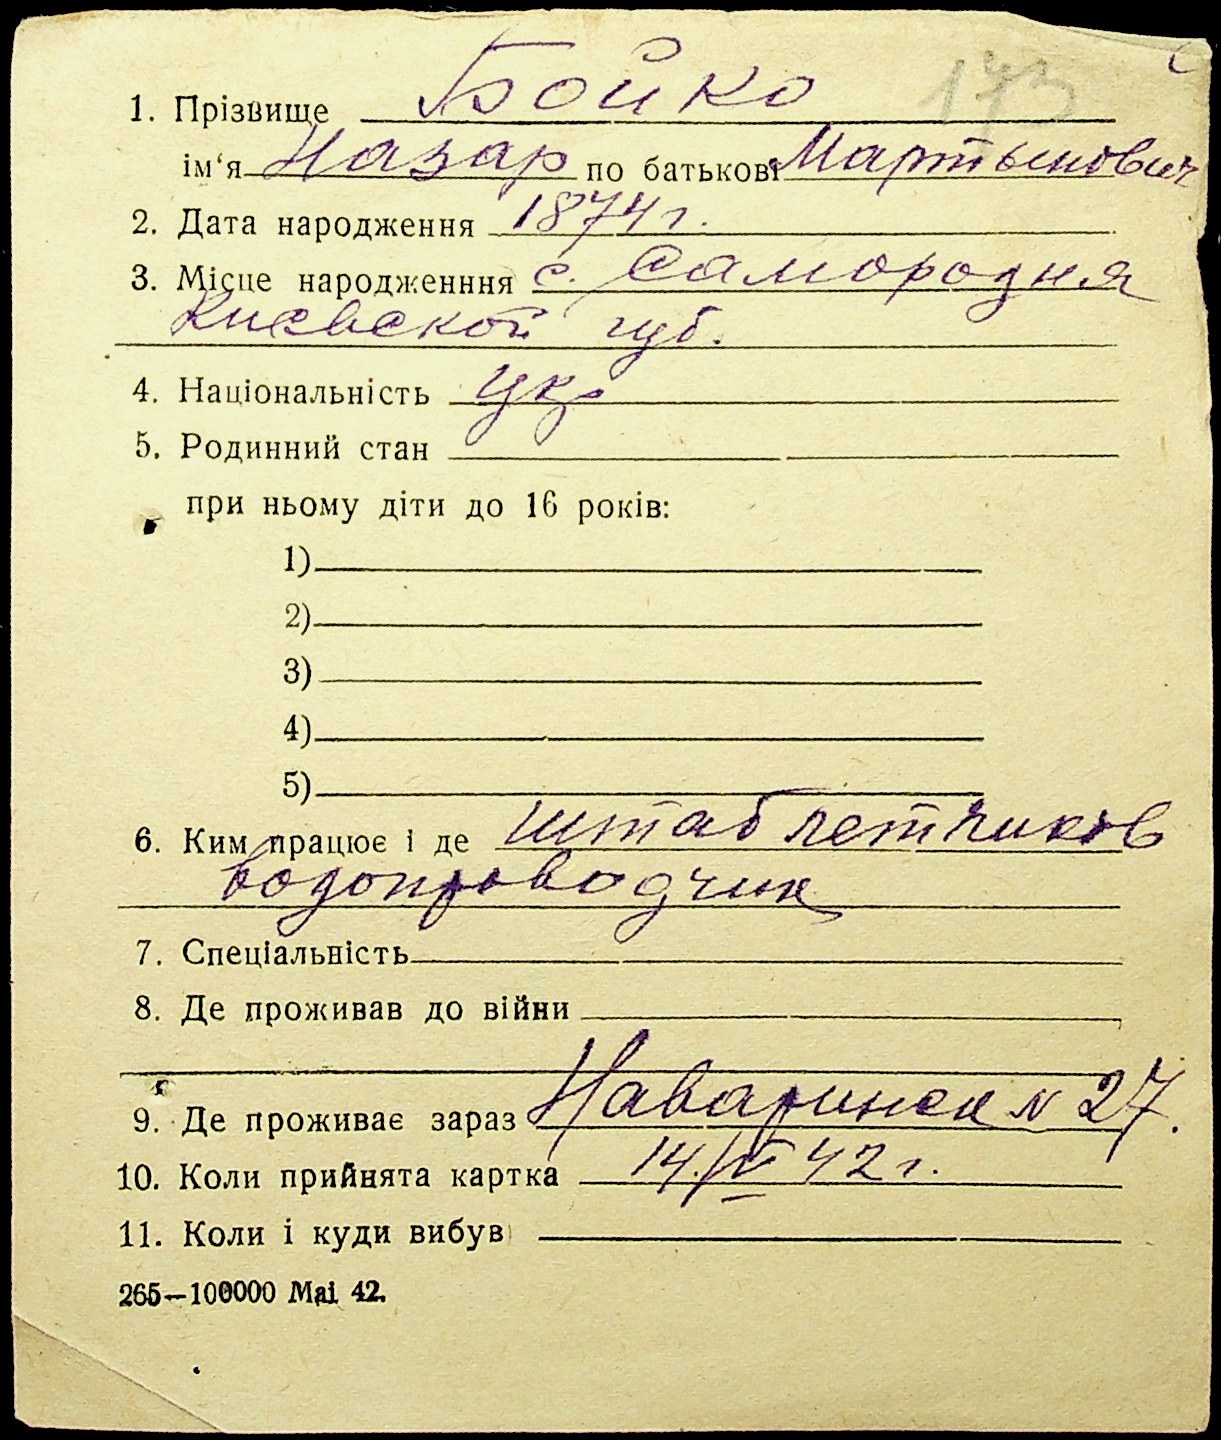 173
1. Прізвище Бойко
ім‘я Назар по батькові Мартынович
2. Дата народження 1874 г.
3. Місце народженння с. Самородня
Киевской губ.
4. Національність укр
5. Родинний стан
при ньому діти до 16 років:
1)
2)
3)
4)
5)
6. Ким працює і де штаб летчиков
водопроводчик
7. Спеціальність
8. Де проживав до війни
9. Де проживає зараз Наваринск N 27.
10. Коли прийнята картка 14/V 42 г.
11. Коли і куди вибув
265—100000 Mai 42.